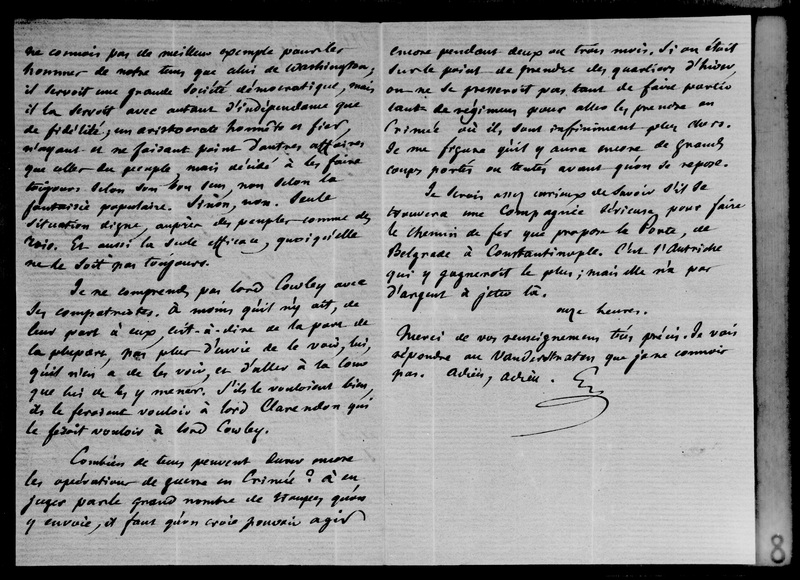 ne connois pas de meilleur exemple pour les
hommes de notre tems que celui de Washington,
il servoit une grande Société démocratique, mais
il la servoit avec autant d'indépendance que
de fidélité; un aristocrate honnête et fier,
n'ayant et ne faisant point d'autres affaires
que celles du peuple, mais décidé à les faire
toujours selon son bon sens, non selon la
fantaisie populaire. Sinon, non. Seule
situation digne, auprès des peuples comme des
Rois. Et aussi la seule efficace, quoiqu'elle
ne le soit pas toujours.
Je ne comprends pas lord Cowley avec
ses compatriotes. À moins qu'il n'y ait, de
leur part à eux, c'est-à-dire de la part de
la plupart, pas plus d'envie de le voir, lui,
qu'il n'en a de les voir, et d'aller à la Cour
que lui de les y mener. S'ils le vouloient bien,
ils le feroient vouloir à lord Clarendon qui
le feroit vouloir à lord Cowley.
Combien de tems peuvent durer encore
les opérations de guerre en Crimée? à en
juger par le grand nombre de troupes qu'on
y envoie, il faut qu'on croie pouvoir agir
encore pendant deux ou trois mois. Si on était
sur le point de prendre des quartiers d'hiver,
on ne se presseroit pas tant de faire partir
tant de régimens pour aller les prendre en
Crimée où ils sont infiniment plus durs.
Je me figure qu'il y aura encore de grands
coups portés ou tentés avant qu'on se repose.
Je serois assez curieux de savoir s'il se
trouvera une Compagnie sérieuse pour faire
le chemin de fer que propose la Porte, de
Belgrade à Constantinople. C'est l'Autriche
qui y gagneroit le plus; mais elle n'a pas
d'argent à jeter là.
onze heures.
Merci de vos renseignemens très précis. Je vais
répondre au Vanderstraten que je ne connois
pas. Adieu, adieu.
8